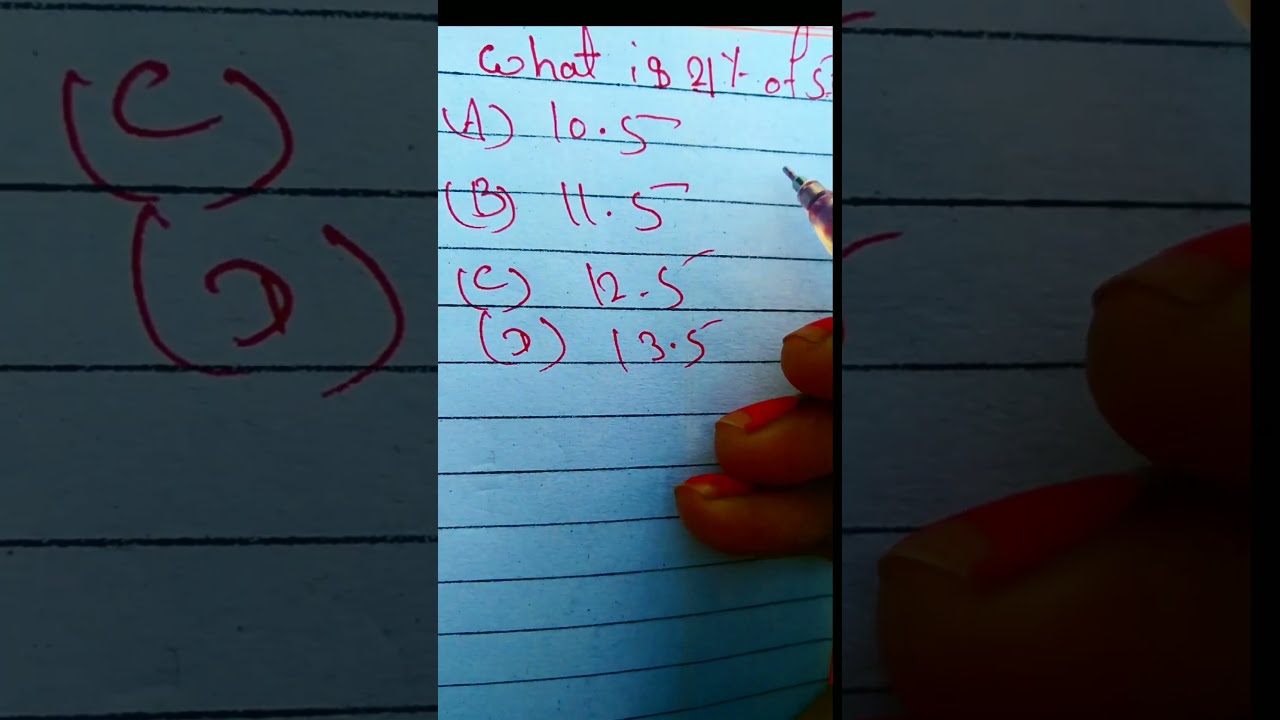 What is 21% of 5
(A) 10.5
(B) 11.5
(C) 12.5
(D) 13.5
(C)
(D)